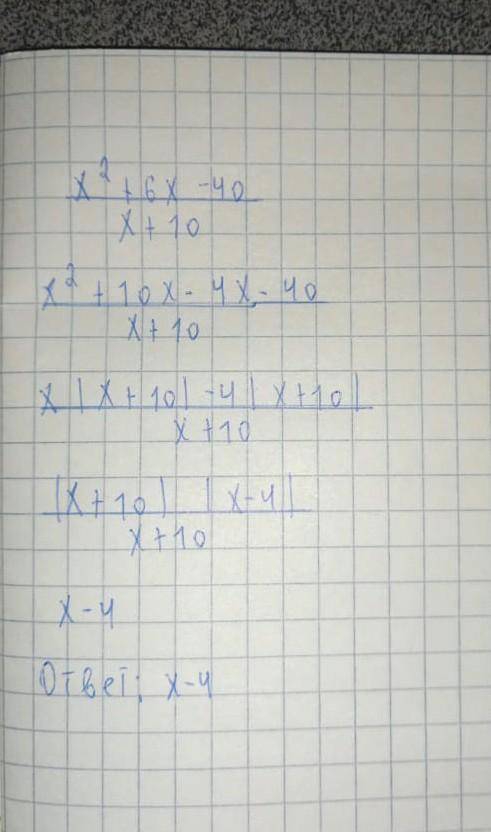 x² + 6x - 40
x + 10
x² + 10x - 4x - 40
x + 10
x |x + 10| - 4 |x + 10|
x + 10
|x + 10| |x - 4|
x + 10
x - 4
Ответ: x - 4